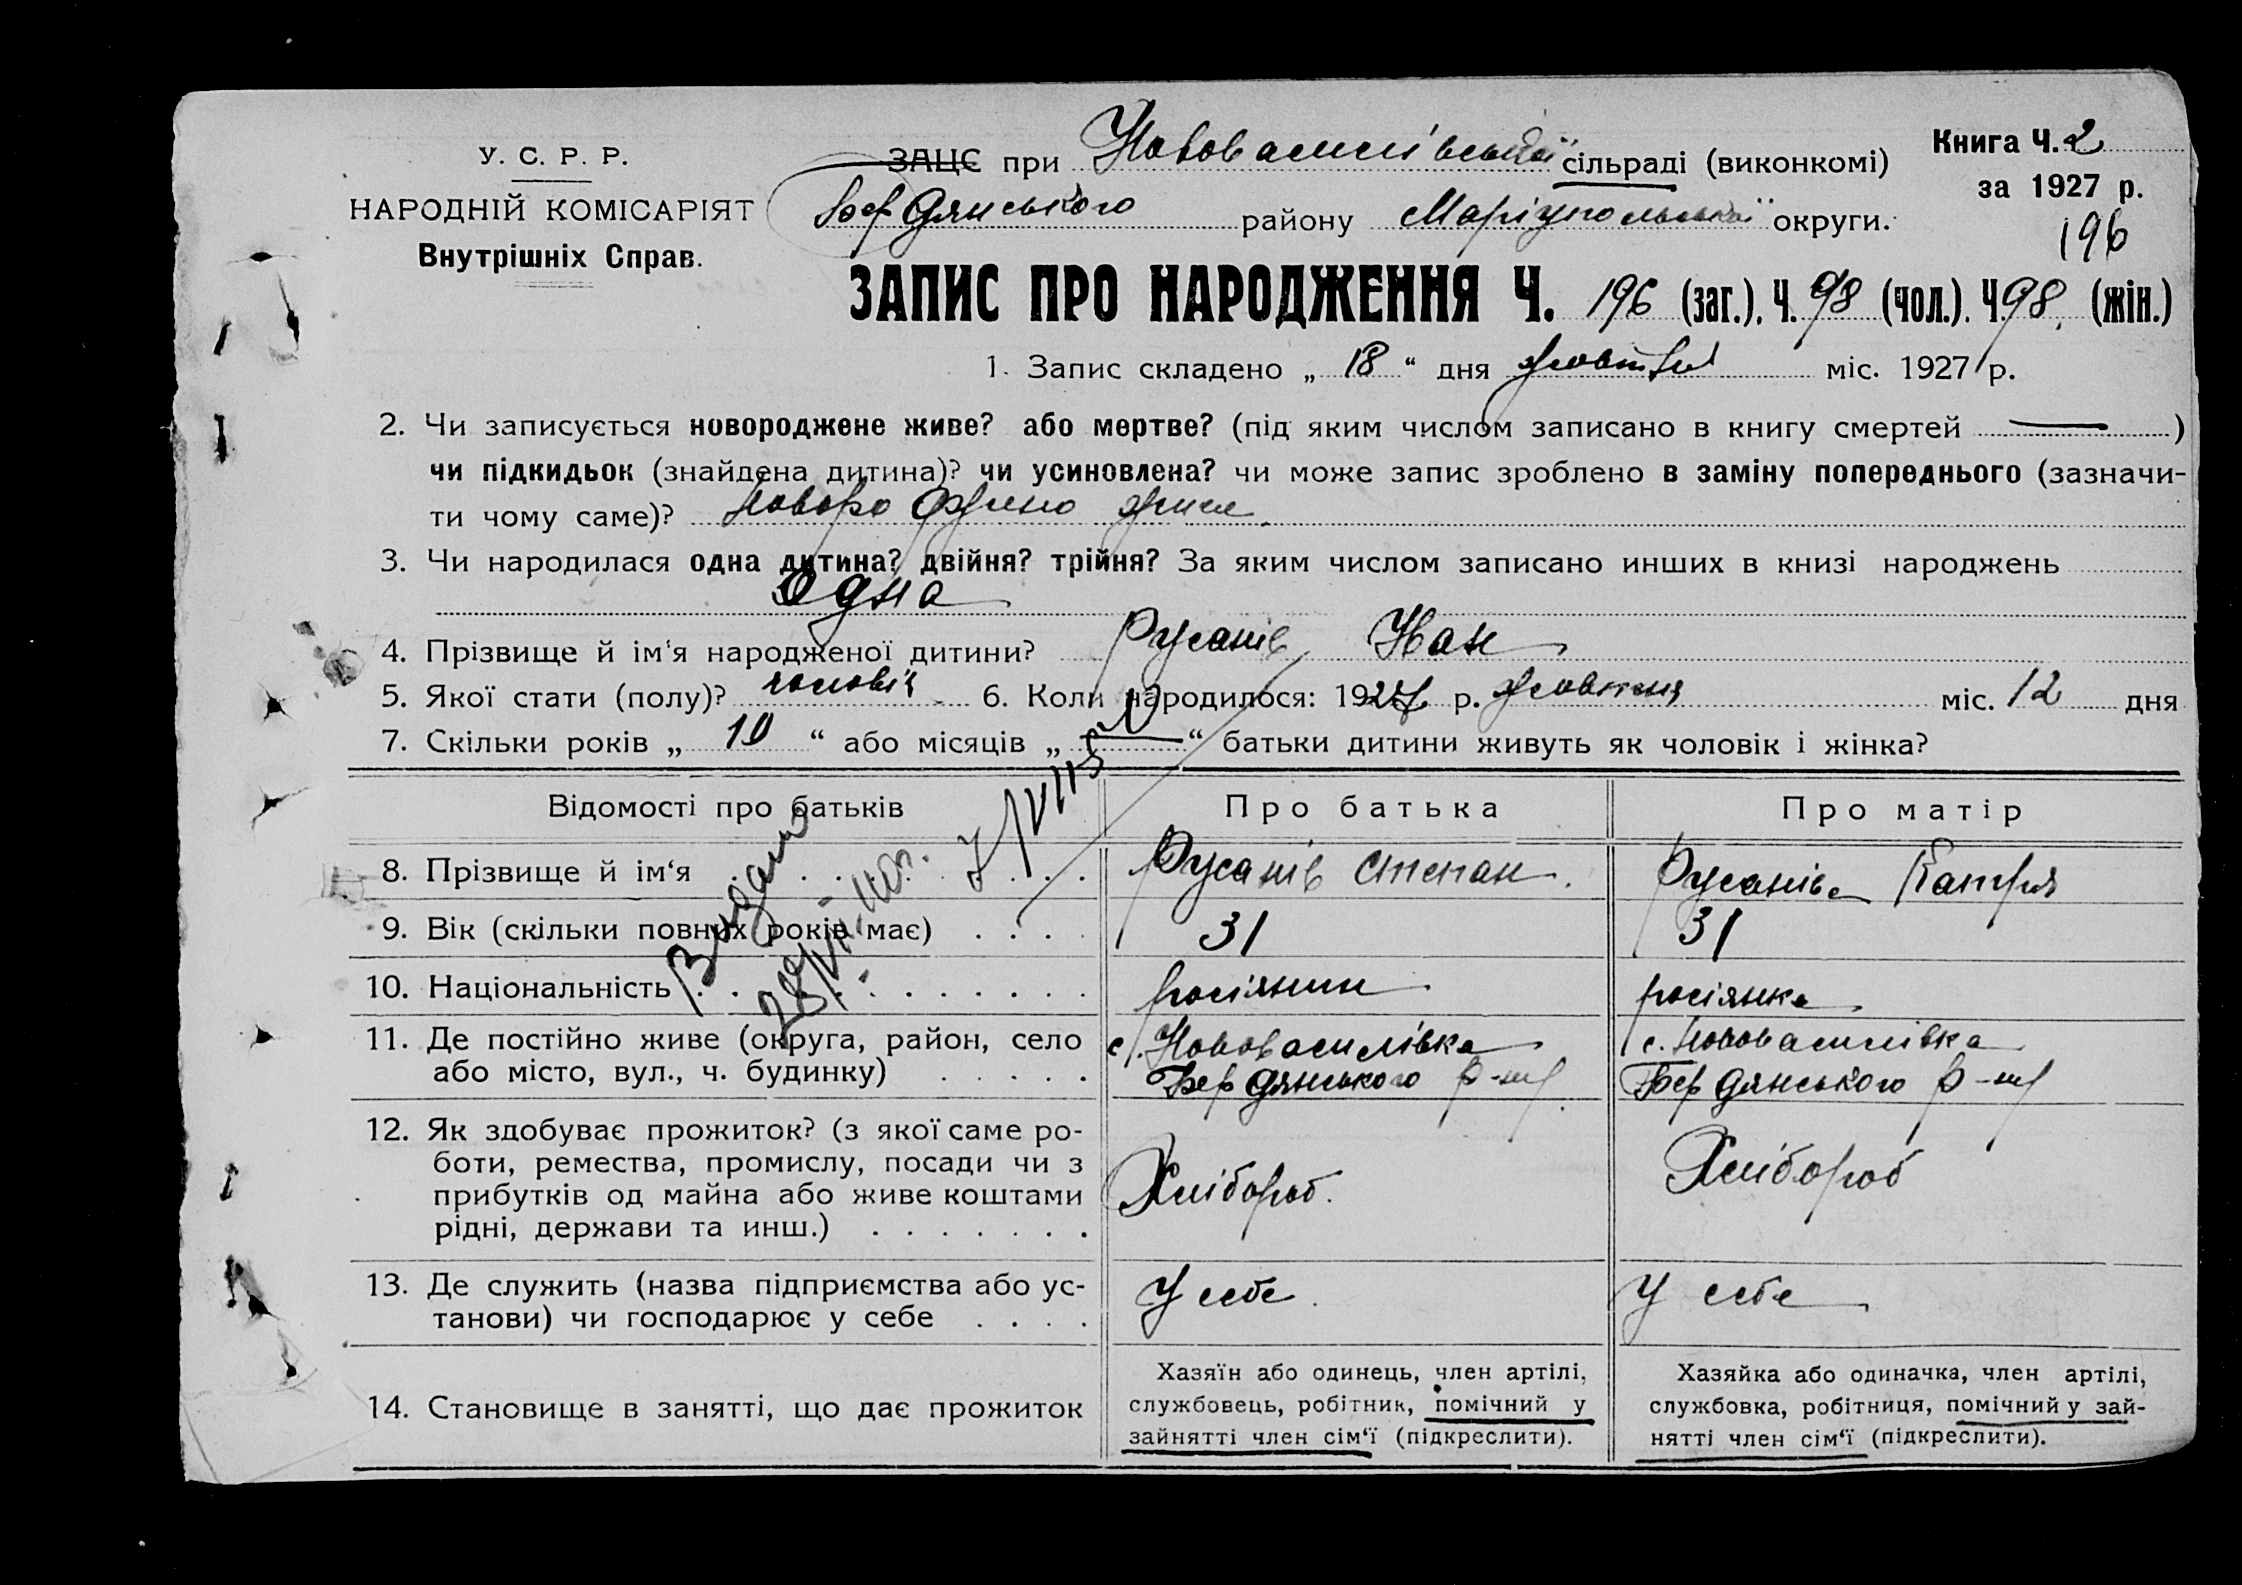 У. С. Р. Р.
НАРОДНІЙ КОМІСАРІЯТ
Внутрішніх Справ.
ЗАЦС при Нововасилівській сільраді (виконкомі)
Бердянського району Маріупольської округи.
Книга Ч. 2
за 1927 р.
196
ЗАПИС ПРО НАРОДЖЕННЯ Ч. 196 (заг.), Ч. 98 (чол.). Ч. 98, (жін.)
1. Запис складено „ 18 “ дня жовтня міс. 1927 р.
2. Чи записується новороджене живе? або мертве? (під яким числом записано в книгу смертей — )
чи підкидьок (знайдена дитина)? чи усиновлена? чи може запис зроблено в заміну попереднього (зазначи-
ти чому саме)? новорожено живе.
3. Чи народилася одна дитина? двійня? трійня? За яким числом записано инших в книзі народжень
Одна
4. Прізвище й ім‘я народженої дитини? Русанів Іван
5. Якої стати (полу)? чоловіч 6. Коли народилося: 1927 р. жовтня міс. 12 дня
7. Скільки років „ 10 “ або місяців „ — “ батьки дитини живуть як чоловік і жінка?
Відомості про батьків Про батька Про матір
8. Прізвище й ім‘я Русанів Степан. Русанівa Катря
9. Вік (скільки повних років має) 31 31
10. Національність росіянин росіянка
Видано
11. Де постійно живе (округа, район, село
або місто, вул., ч. будинку)
с. Нововасилівка
Бердянського р-ну
с. Нововасилівка
Бердянського р-ну
12. Як здобуває прожиток? (з якої саме ро-
боти, ремества, промислу, посади чи з
прибутків од майна або живе коштами
рідні, держави та инш.)
Хлібороб.
Хлібороб
13. Де служить (назва підприємства або ус-
танови) чи господарює у себе
У себе
У себе
14. Становище в занятті, що дає прожиток
Хазяїн або одинець, член артілі,
службовець, робітник, помічний у
зайнятті член сім‘ї (підкреслити).
Хазяйка або одиначка, член артілі,
службовка, робітниця, помічний у зай-
нятті член сім‘ї (підкреслити).